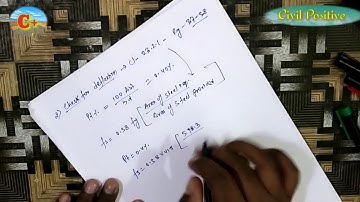 C+
Civil Positive
d) Check for deflection → Cl- 23.2.1 - Pg- 37-38
Pt% = 100 Ast / bd = 0.40%
fs = 0.58 fy [ Area of steel req / Area of steel provided ]
Pt = 0.4%
fs = 0.58 × 415 [ 548.3